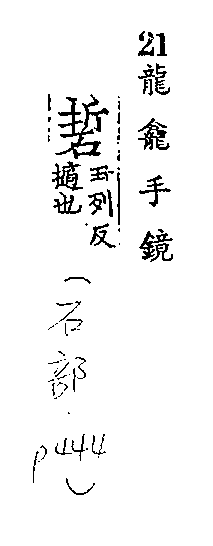 21龍龕手鏡
硩
丑列反
擿也
(石部.p444)